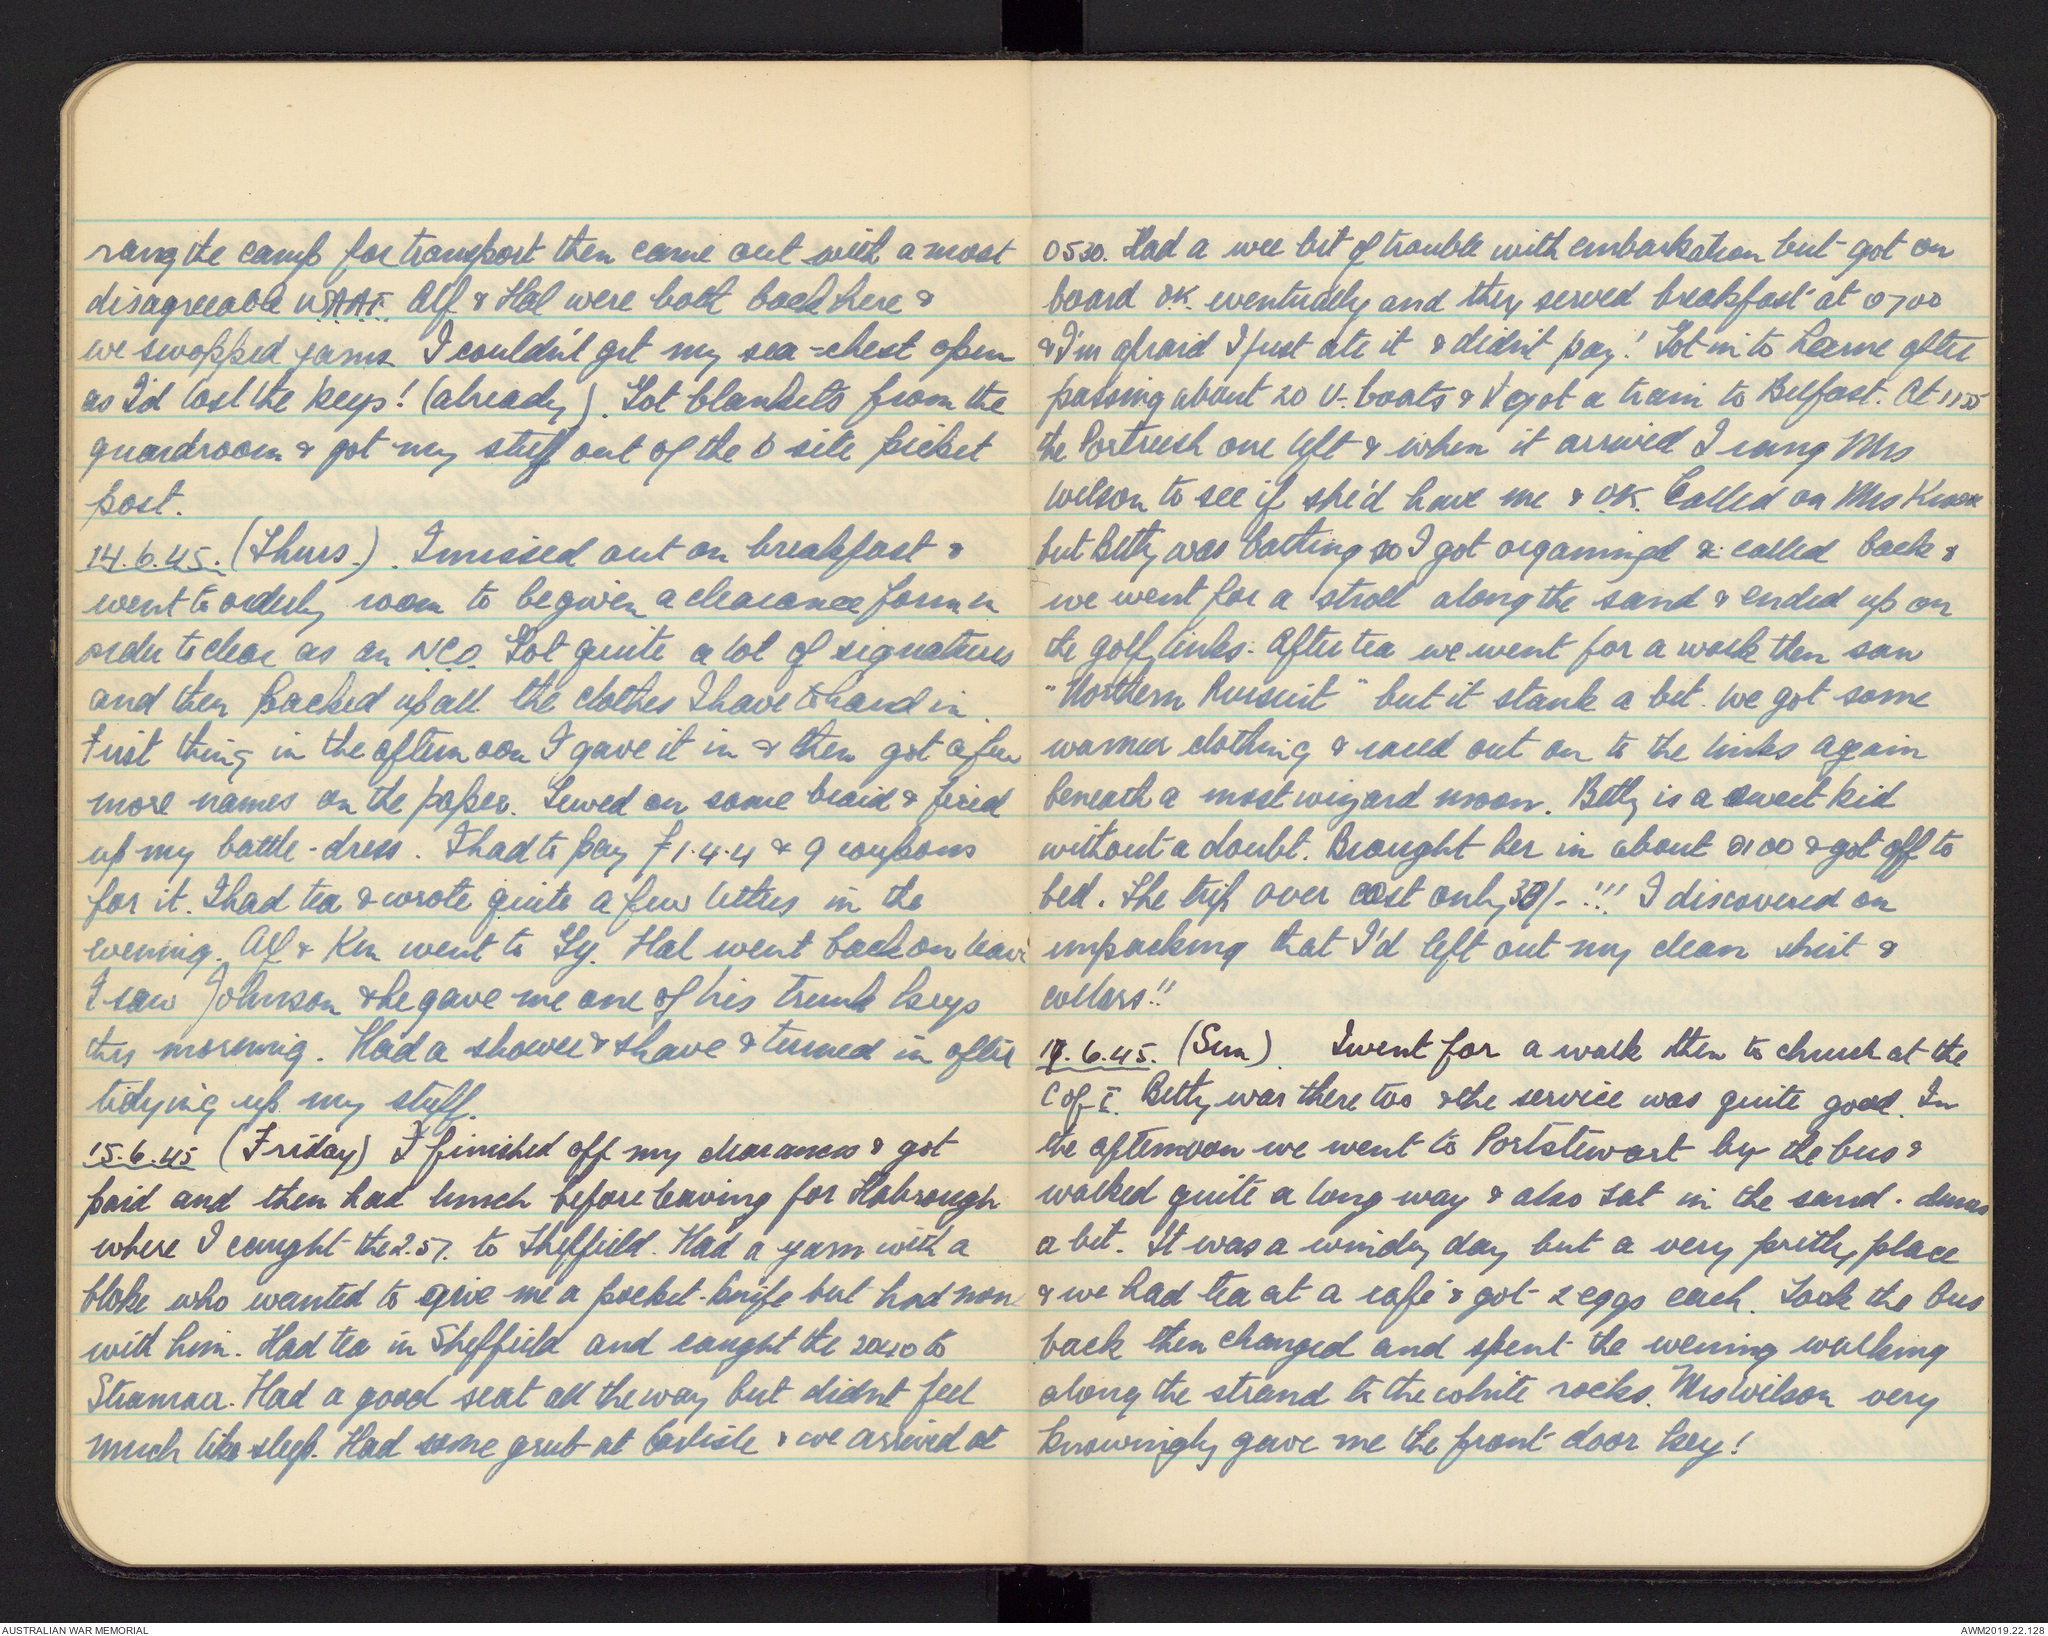 rang the camp for transport then came out with a most
disagreeable WAAF. Alf & Hal were both back here &
we swopped yarns. I couldn't get my sea-chest open
as I'd lost the keys! (already). Got blankets from the
guardroom & got my stuff out of the D site picket
post.
14.6.45. (Thurs.). I missed out on breakfast &
went to orderly room to be given a clearance form in
order to clear as an NCO. Got quite a lot of signatures
and then packed up all the clothes I have to hand in.
First thing in the afternoon I gave it in & then got a few
more names on the paper. Sewed on some braid & fixed
up my battle-dress. I had to pay £1.4.4 & 9 coupons
for it. I had tea & wrote quite a few letters in the
evening. Alf & Ken went to Gy. Hal went back on leave
I saw Johnson & he gave me one of his trunk keys
this morning. Had a shower & shave & turned in after
tidying up my stuff.
15.6.45 (Friday) I finished off my clearances & got
paid and then had lunch before leaving for Habrough
where I caught the 2.57. to Sheffield. Had a yarn with a
bloke who wanted to give me a pocket-knife but had none
with him. Had tea in Sheffield and caught the 2040 to
Stranraer. Had a good seat all the way but didnt feel
much like sleep. Had some grub at Carlisle & we arrived at
0530. Had a wee bit of trouble with embarkation but got on
board OK. eventually and they served breakfast at 0700
& I'm afraid I just ate it & didn't pay! Got in to Larne after
passing about 20 U-boats & I got a train to Belfast. At 1155
the Portrush one left & when it arrived I rang Mrs
Wilson to see if she'd have me & O.K. Called on Mrs
but Betty was batting so I got organinged & called back &
we went for a stroll along the sand & ended up on
the golf links. After tea we went for a walk then saw
"Northern Pursuit" but it stank a bit. We got some
warmer clothing & raced out on to the links again
beneath a most wizard moon. Betty is a sweet kid
without a doubt. Brought her in about 0100 & got off to
bed. The trip over cost only 30/- !!! I discovered on
unpacking that I'd left out my clean shirt &
collars!!
17.6.45. (Sun). I went for a walk then to church at the
C of I. Betty was there too & the service was quite good. In
the afternoon we went to Portstewart by the bus &
walked quite a long way & also sat in the sand-dunes
a bit. It was a windy day but a very pretty place
& we had tea at a cafe & got 2 eggs each. Took the bus
back then changed and spent the evening walking
along the strand to the white rocks. Mrs Wilson very
knowingly gave me the front door key!
AUSTRALIAN WAR MEMORIAL
AWM2019.22.128